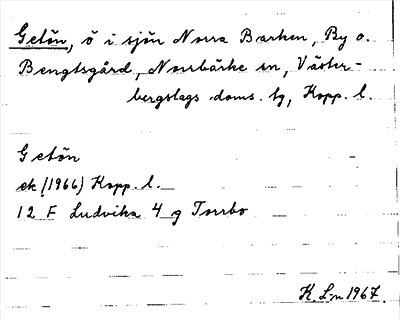 Getön, ö i sjön Norra Barken, By o.
Bengtsgård, Norrbärke sn, Väster-
bergslags doms. tg, Kopp. l.
Getön
ek (1966) Kopp. l.
12 F Ludvika 4 g Torrbo
K. L-n 1967.